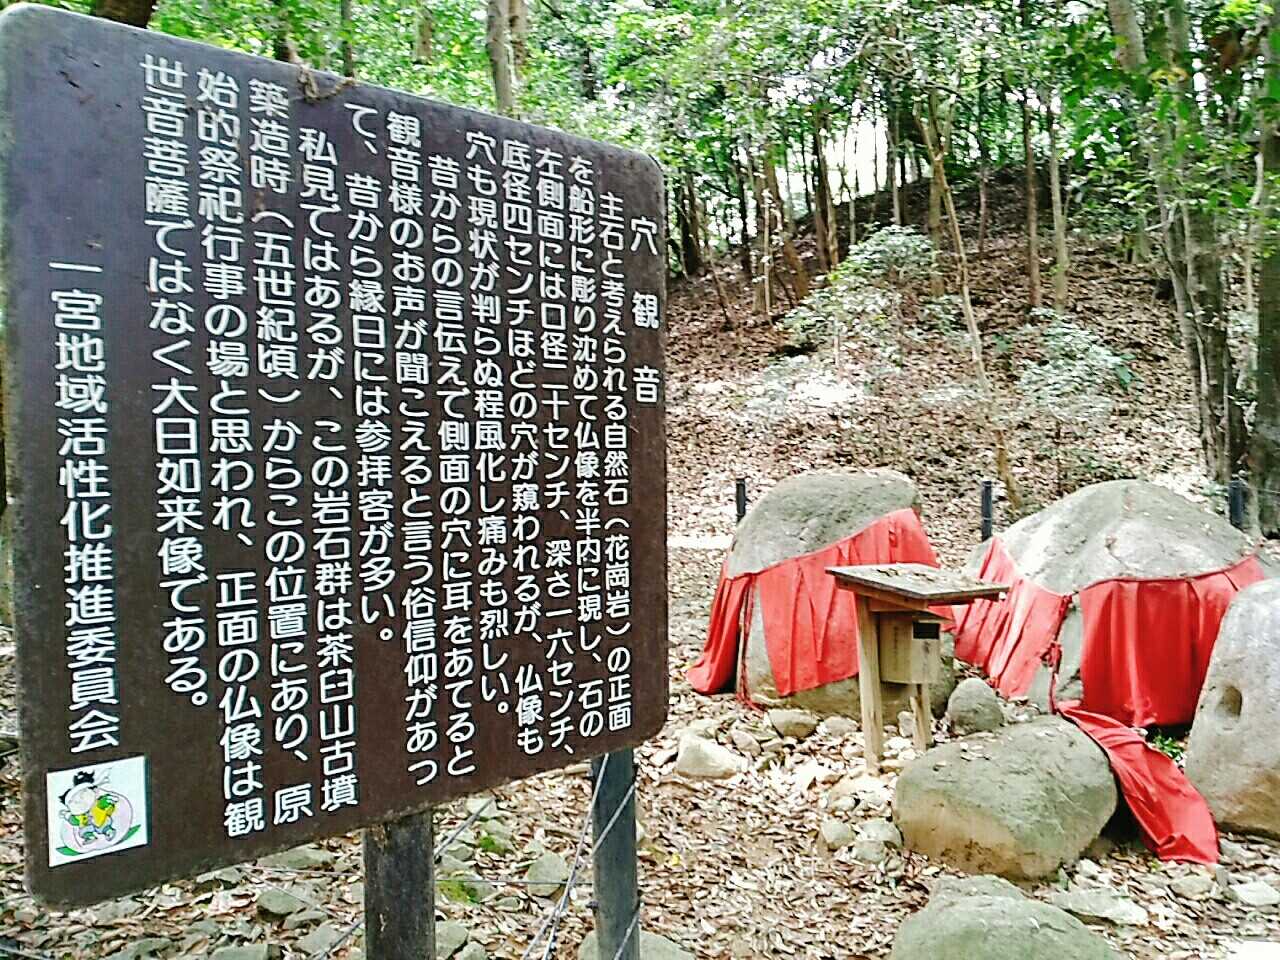 穴観音
主石と考えられる自然石（花崗岩）の正面
を船形に彫り沈めて仏像を半内に現し、石の
左側面には口径二十センチ、深さ一六センチ、
底径四センチほどの穴が窺われるが、仏像も
穴も現状が判らぬ程風化し痛みも烈しい。
昔からの言伝えで側面の穴に耳をあてると
観音様のお声が聞こえると言う俗信仰があっ
て、昔から縁日には参拝客が多い。
私見てはあるが、この岩石群は茶臼山古墳
築造時（五世紀頃）からこの位置にあり、原
始的祭祀行事の場と思われ、正面の仏像は観
世音菩薩ではなく大日如来像である。
一宮地域活性化推進委員会